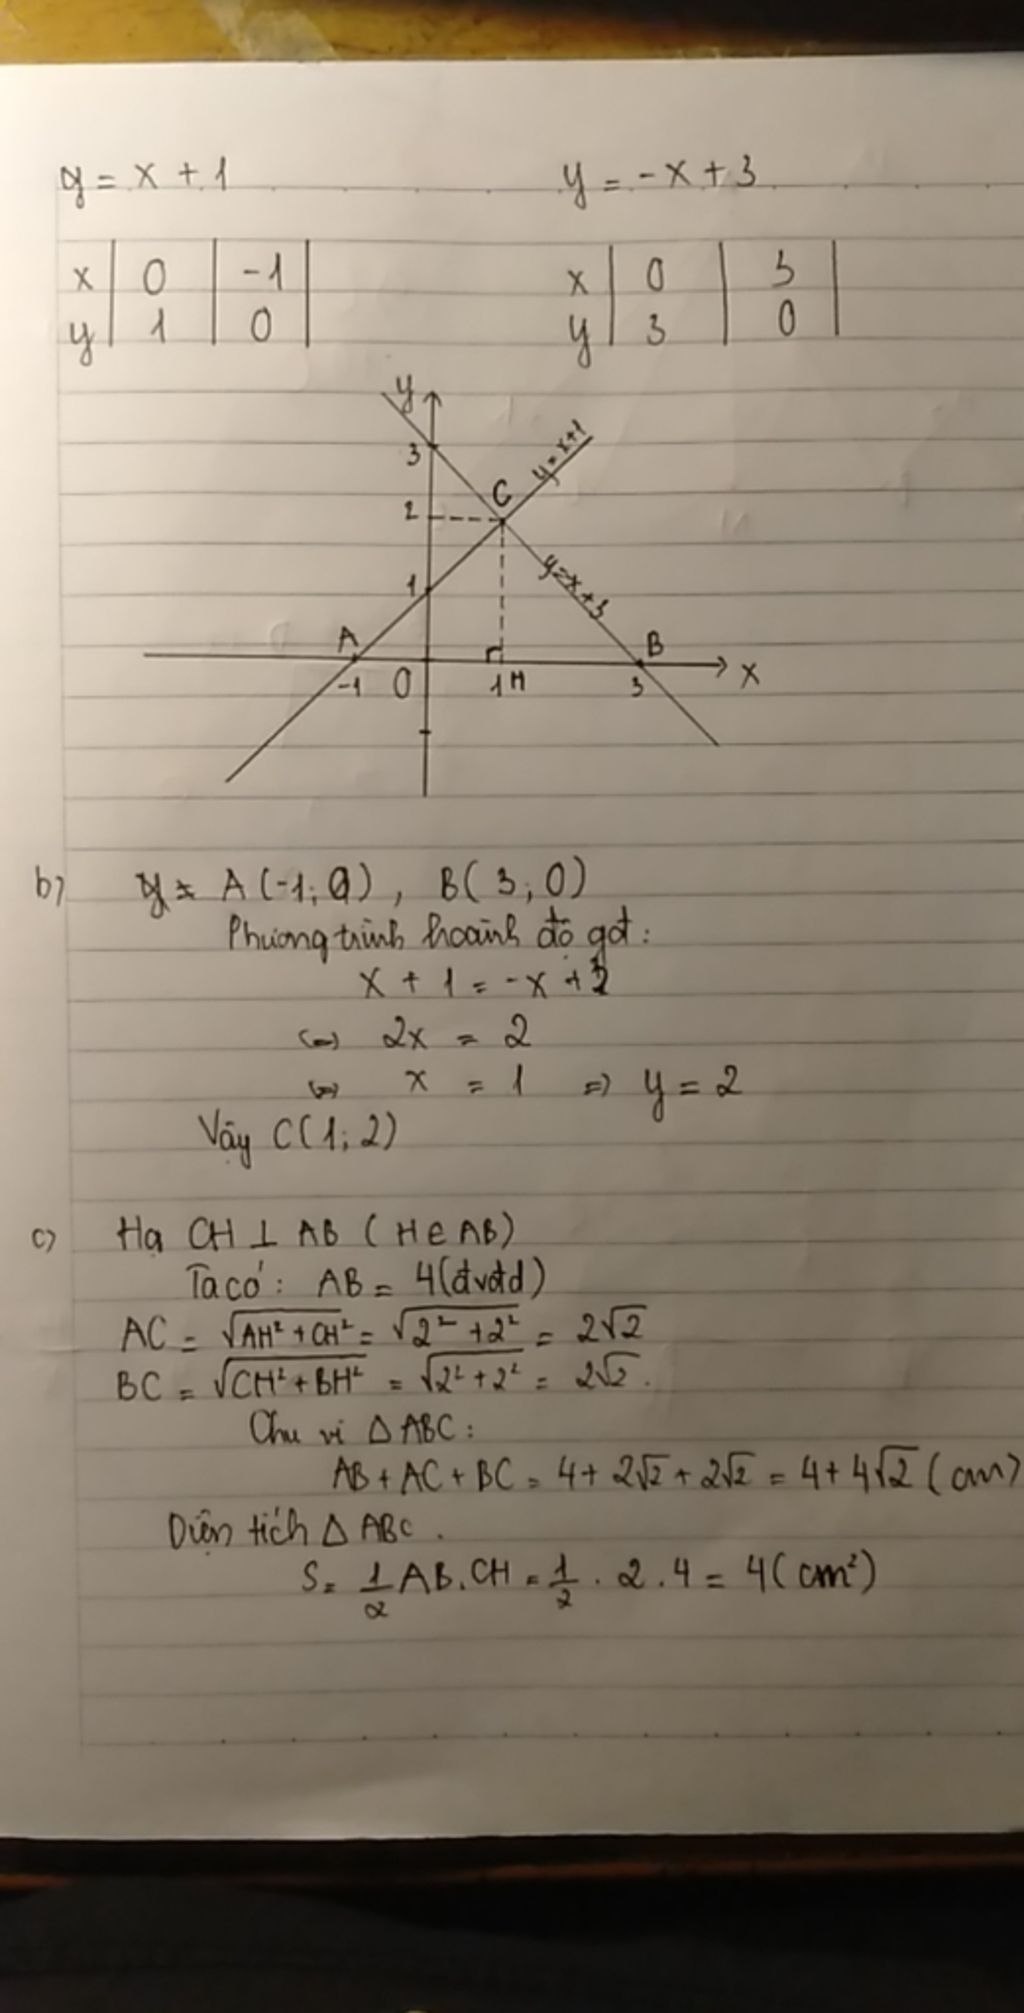 y = x + 1    y = -x + 3
x | 0 | -1 |    x | 0 | 3 |
y | 1 | 0 |    y | 3 | 0 |
y
3
y = x+1
C
2
y=x+3
1
A
B
-1 0 1 H 3 x
b) A (-1; 0) , B( 3; 0)
Phương trình hoành độ gđ:
x + 1 = -x + 3
<=> 2x = 2
<=> x = 1 => y = 2
Vậy C(1; 2)
c) Hạ CH ⊥ AB ( H ∈ AB)
Ta có: AB = 4(đvđd)
AC = √(AH² + CH²) = √(2² + 2²) = 2√2
BC = √(CH² + BH²) = √(2² + 2²) = 2√2.
Chu vi Δ ABC:
AB + AC + BC = 4 + 2√2 + 2√2 = 4 + 4√2 (cm)
Diện tích Δ ABC.
S = 1/2 AB. CH = 1/2 . 2 . 4 = 4 ( cm²)